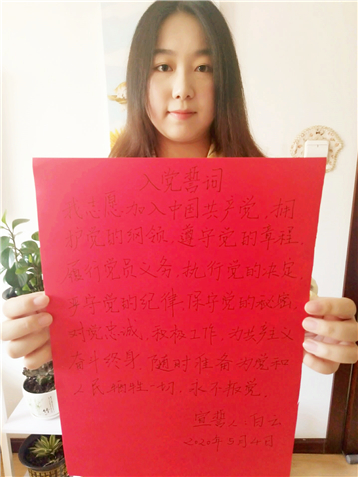 入党誓词
我志愿加入中国共产党，拥
护党的纲领，遵守党的章程，
履行党员义务，执行党的决定，
严守党的纪律，保守党的秘密，
对党忠诚，积极工作，为共产主义
奋斗终身，随时准备为党和
人民牺牲一切，永不叛党。
宣誓人：白云
2020年3月4日